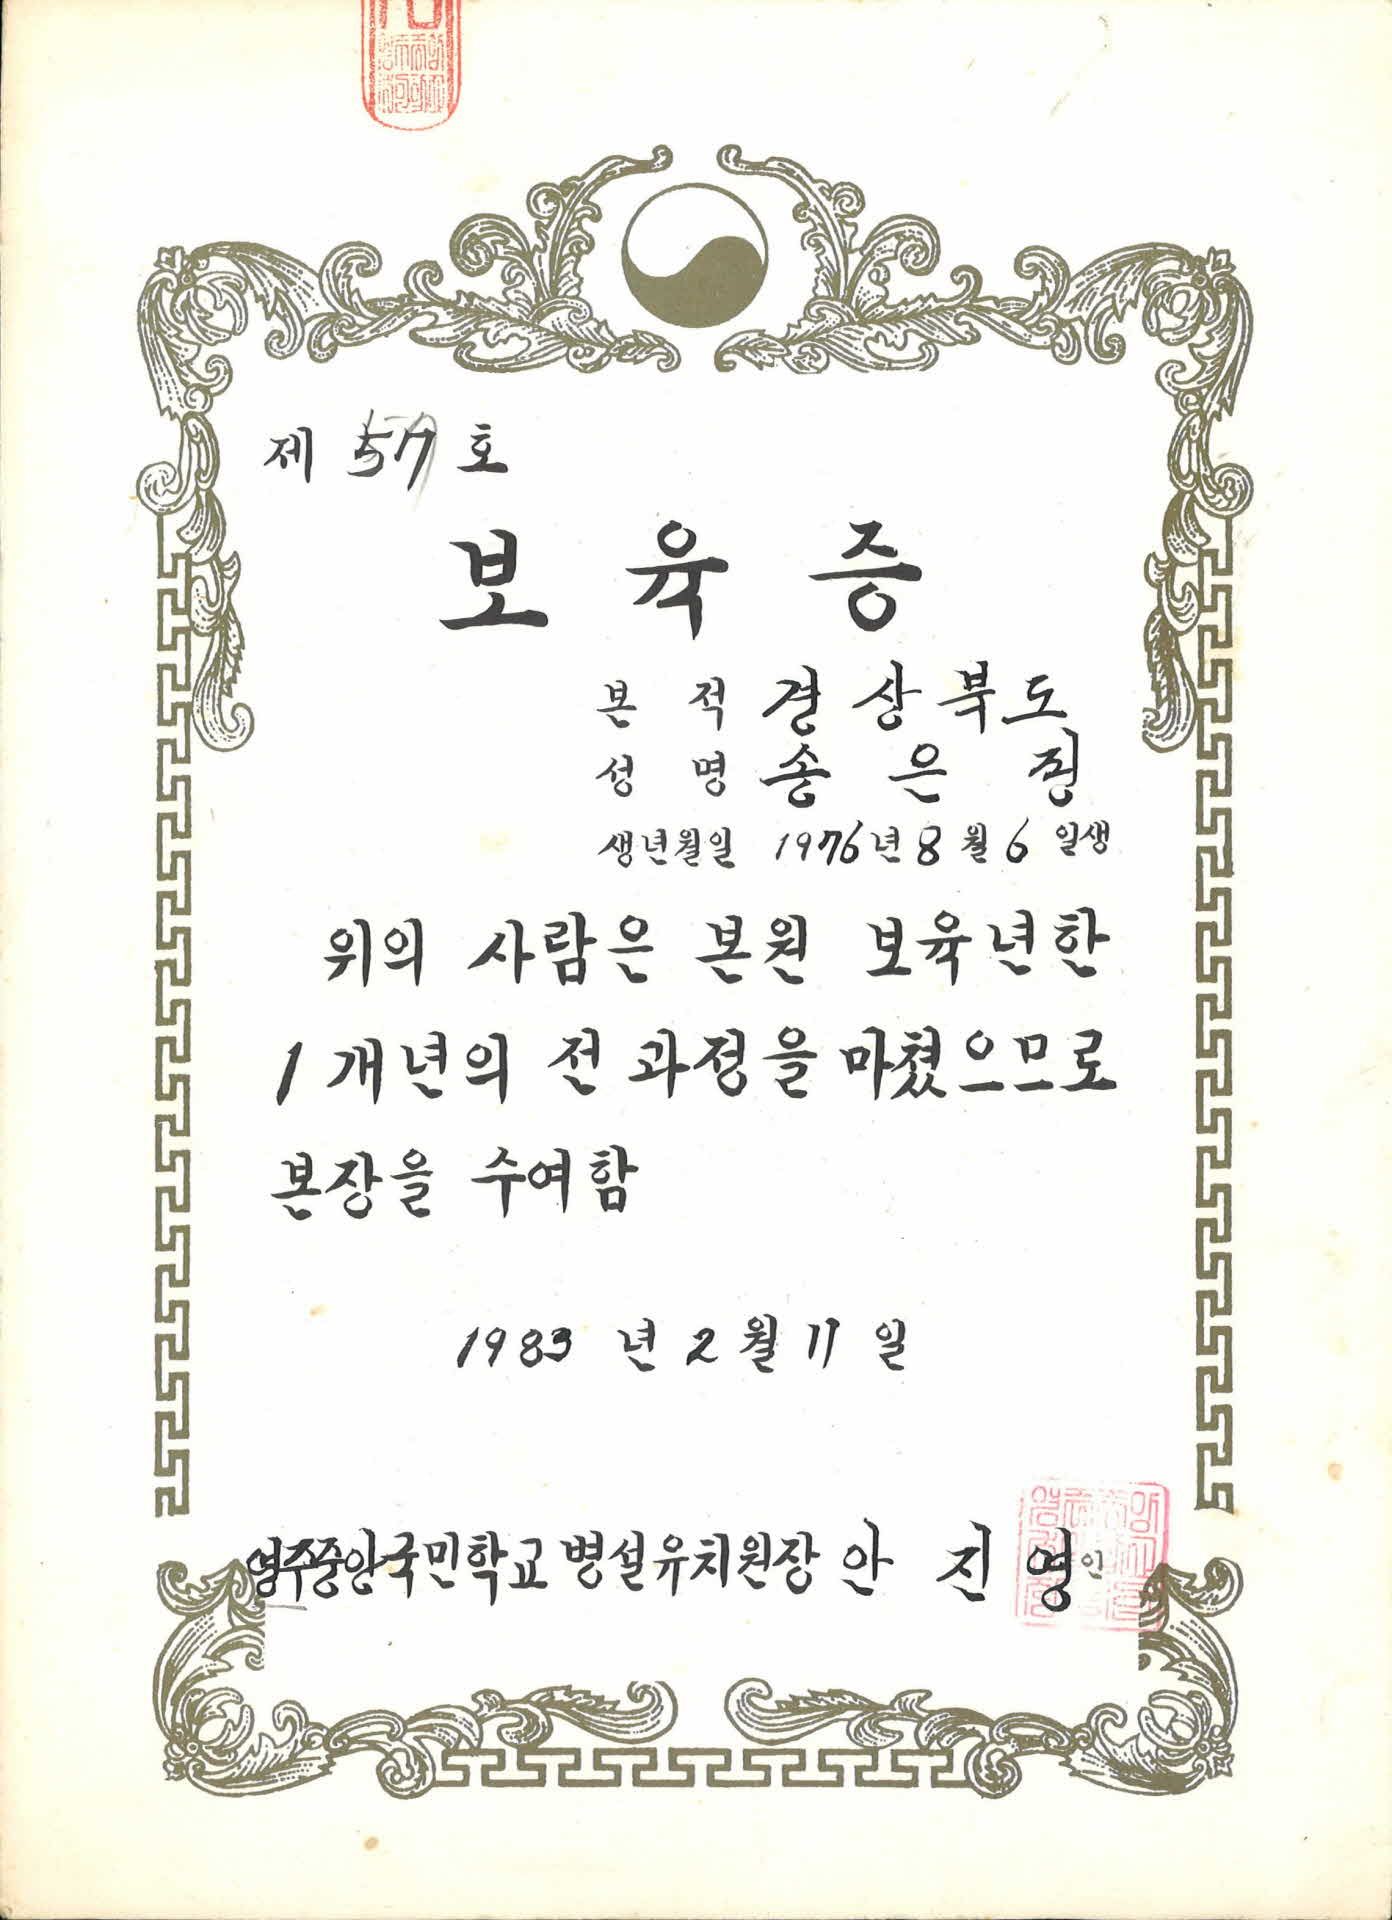 제 57 호
보육증
본 적 경상북도
성 명 송은정
생년월일 1976년 8월 6일생
위의 사람은 본원 보육년한
1개년의 전 과정을 마쳤으므로
본장을 수여함
1983년 2월 11일
영주중앙국민학교 병설유치원장 안 진 영 인